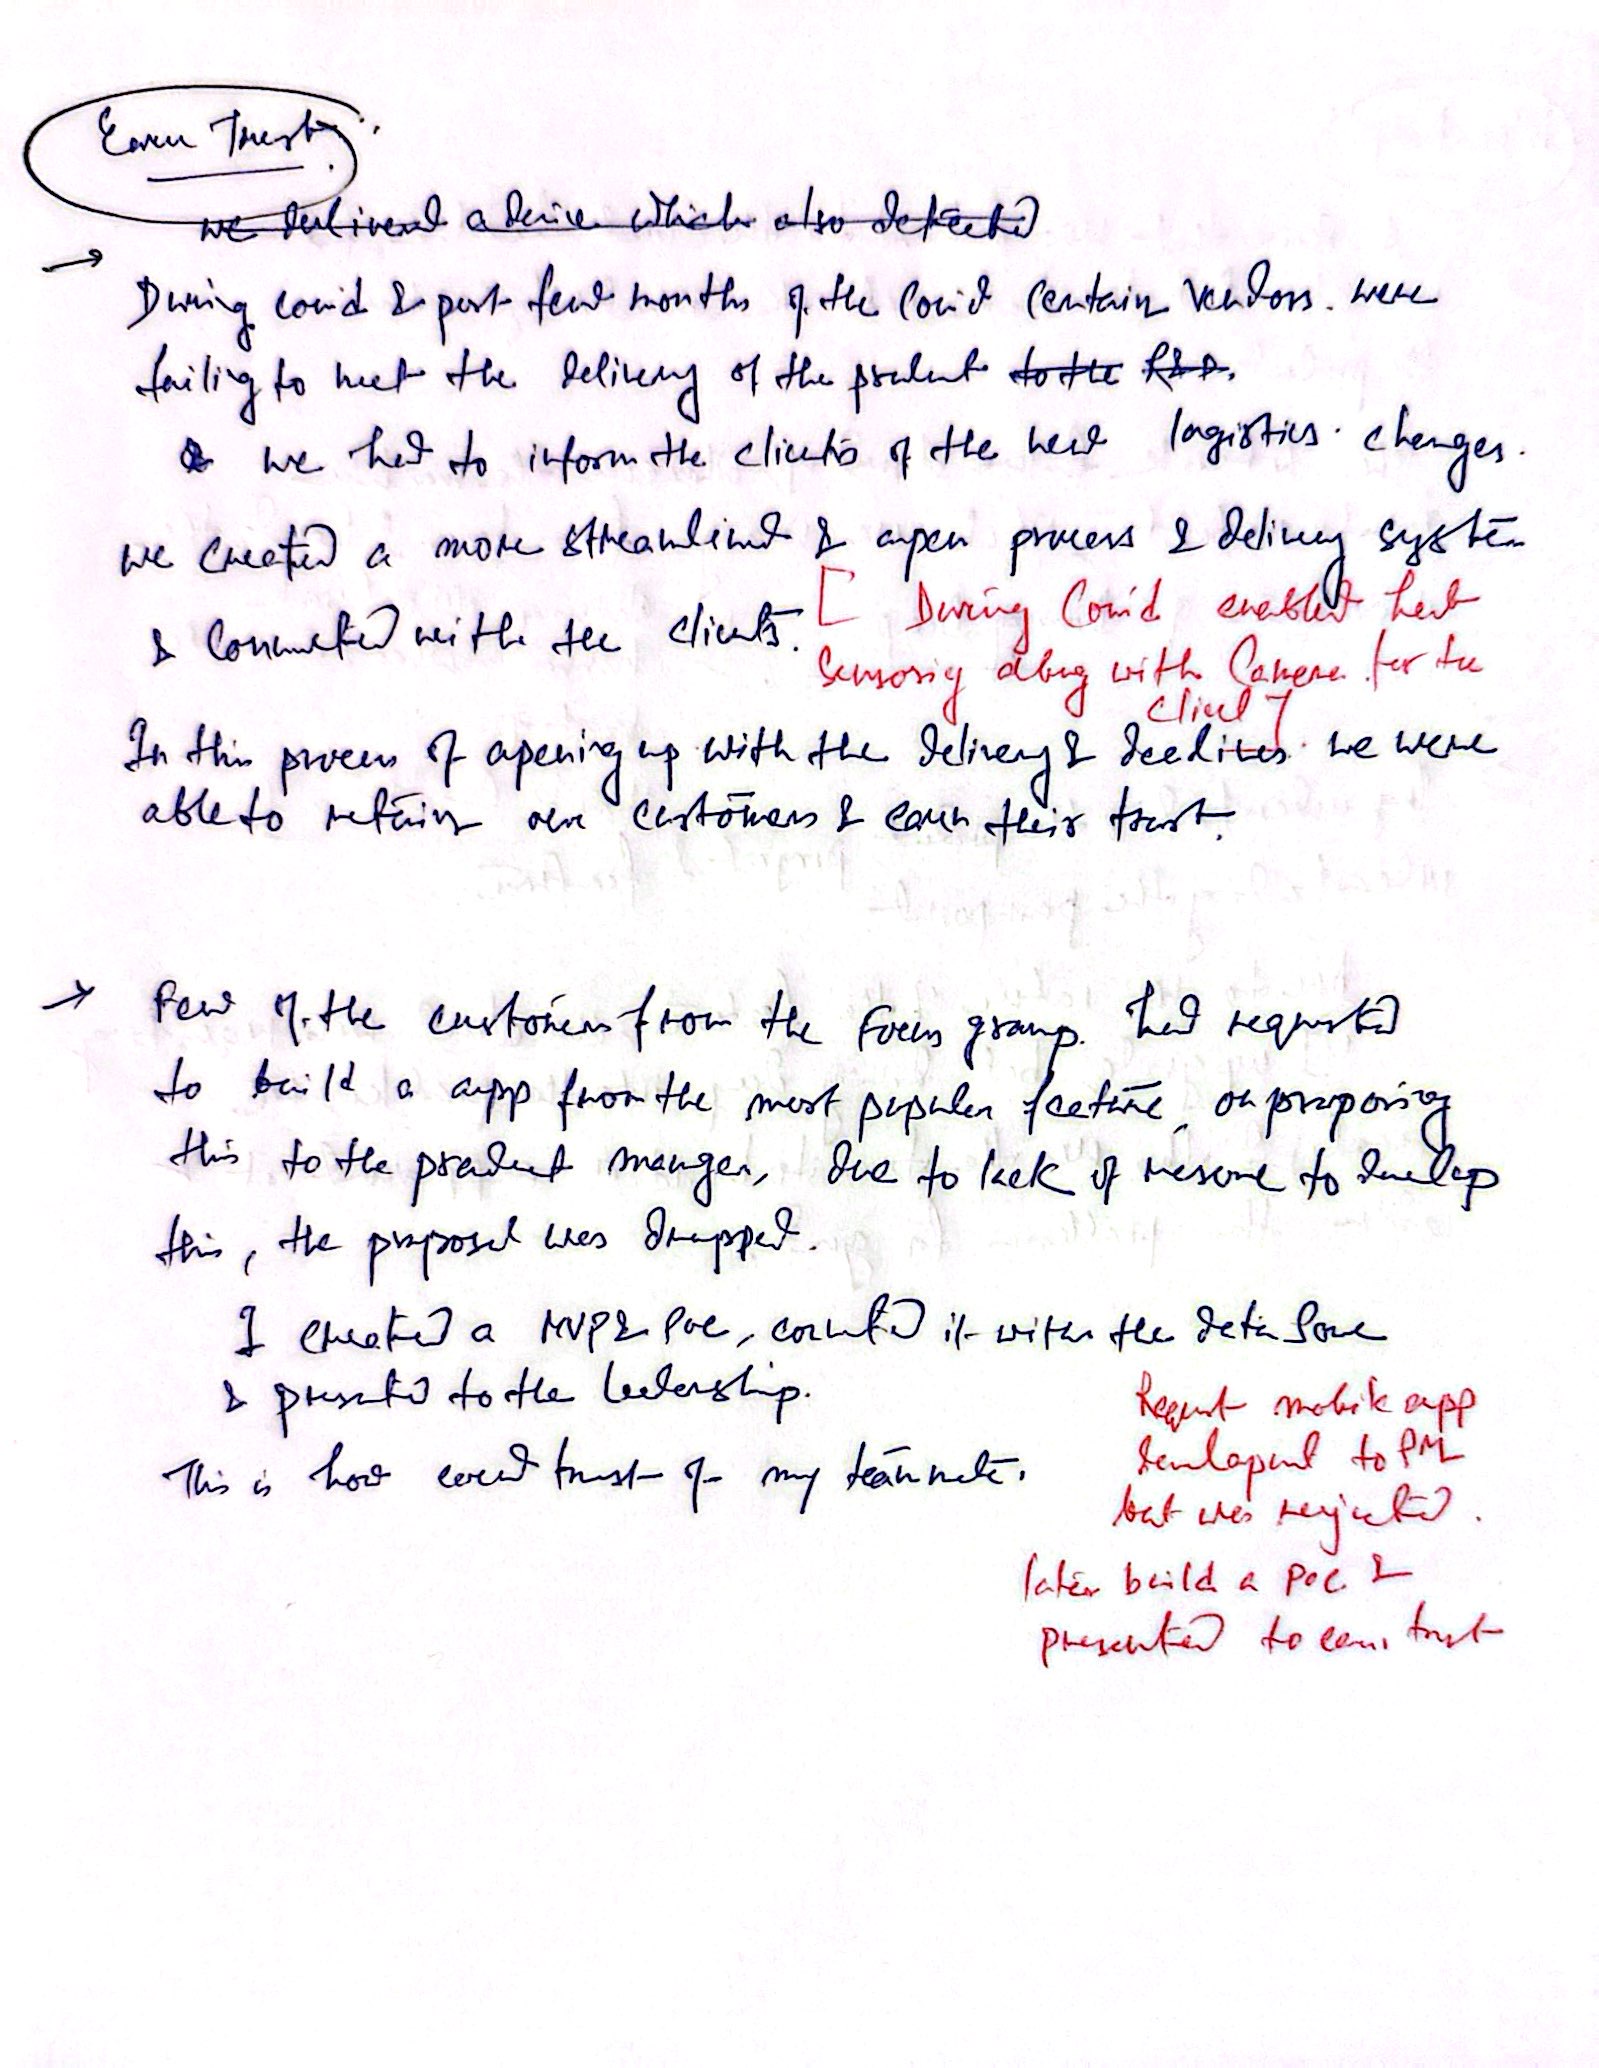 Earn Trust
we delivered a device which also detected
→
During covid & post few months of the Covid certain vendors. were
failing to meet the delivery of the product to the R&D.
& we had to inform the clients of the new logistics. changes.
we created a more streamlined & open process & delivery system
& Connected with the clients.
[ During Covid enabled heat
sensorig along with Camera for the
client ]
In this process of opening up with the delivery & deadlines. we were
able to retain our customers & earn their trust.
→ Few of the customers from the Focus group. had requested
to build a app from the most popular feature, on proposing
this to the product manger, due to lack of resource to develop
this, the proposal was dropped.
I created a MVP & POC, connected it with the data base
& presented to the leadership.
This is how earned trust of my teammate.
Request mobile app
development to PM
but was rejected.
later build a POC &
presented to earn trust